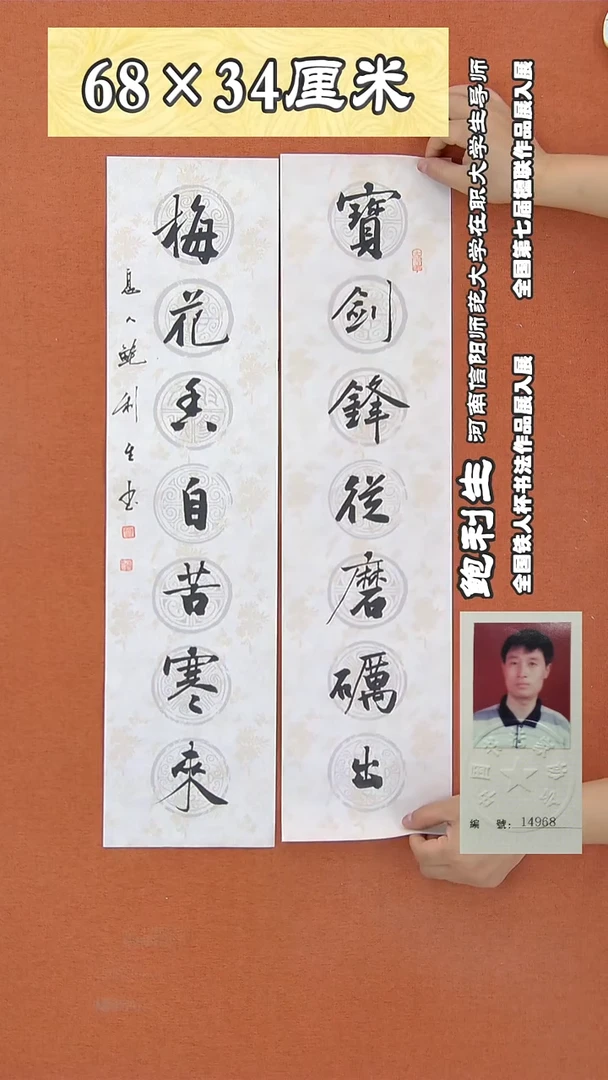 68×34厘米
寶劍鋒從磨礪出
梅花香自苦寒來
息人鮑利生書
鲍利生
河南信阳师范大学在职大学生导师
全国第七届楹联作品展入展
全国铁人杯书法作品展入展
編 號: 14968